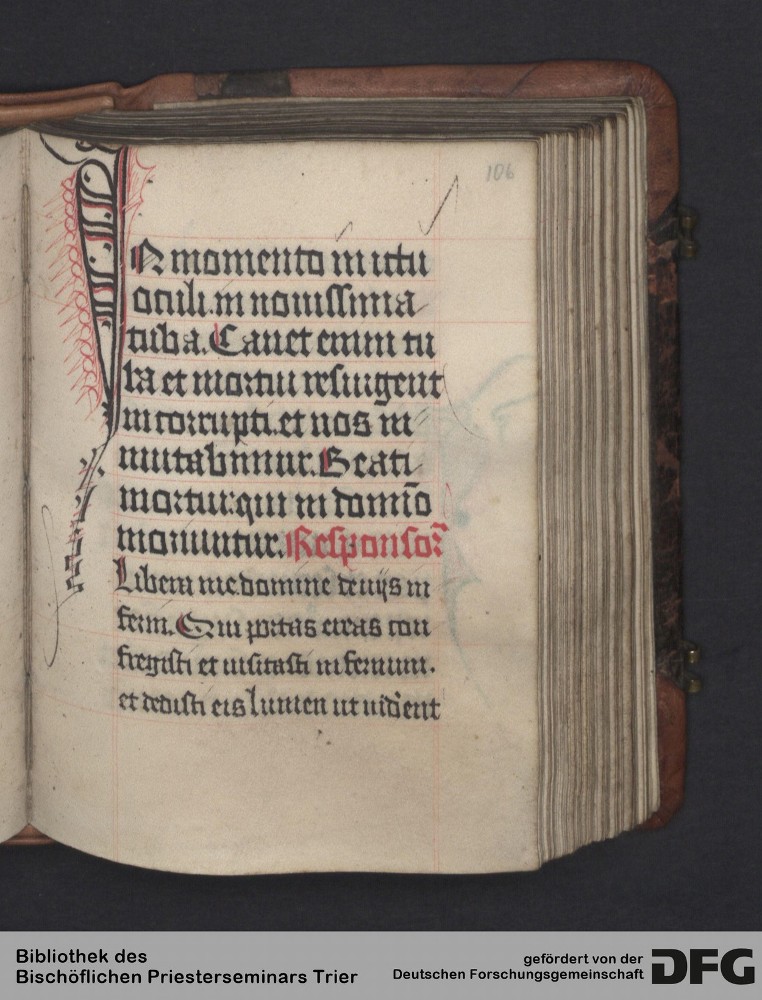 106
IN momento in ictu
oculi. in nouissima
tuba. Canet enim tu
ba et mortui resurgent
incorrupti. et nos in
mutabimur. Beati
mortui: qui in domīo
moriuntur. Responsor᷑
Libera me domine de uijs in
ferni. Qui portas ereas con
fregisti et uisitasti infernum.
et dedisti eis lumen ut uidēent
Bibliothek des
Bischöflichen Priesterseminars Trier
gefördert von der
Deutschen Forschungsgemeinschaft
DFG